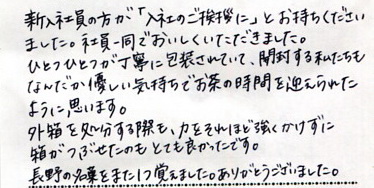 新入社員の方が「入社のご挨拶に」とお持ちください
ました。社員一同でおいしくいただきました。
ひとつひとつが丁寧に包装されていて、開封する私たちも
なんだか優しい気持ちでお茶の時間を迎えられた
ように思います。
外箱を処分する際も、力をそれほど強くかけずに
箱がつぶせたのもとても良かったです。
長野の名菓をまた1つ覚えました。ありがとうございました。